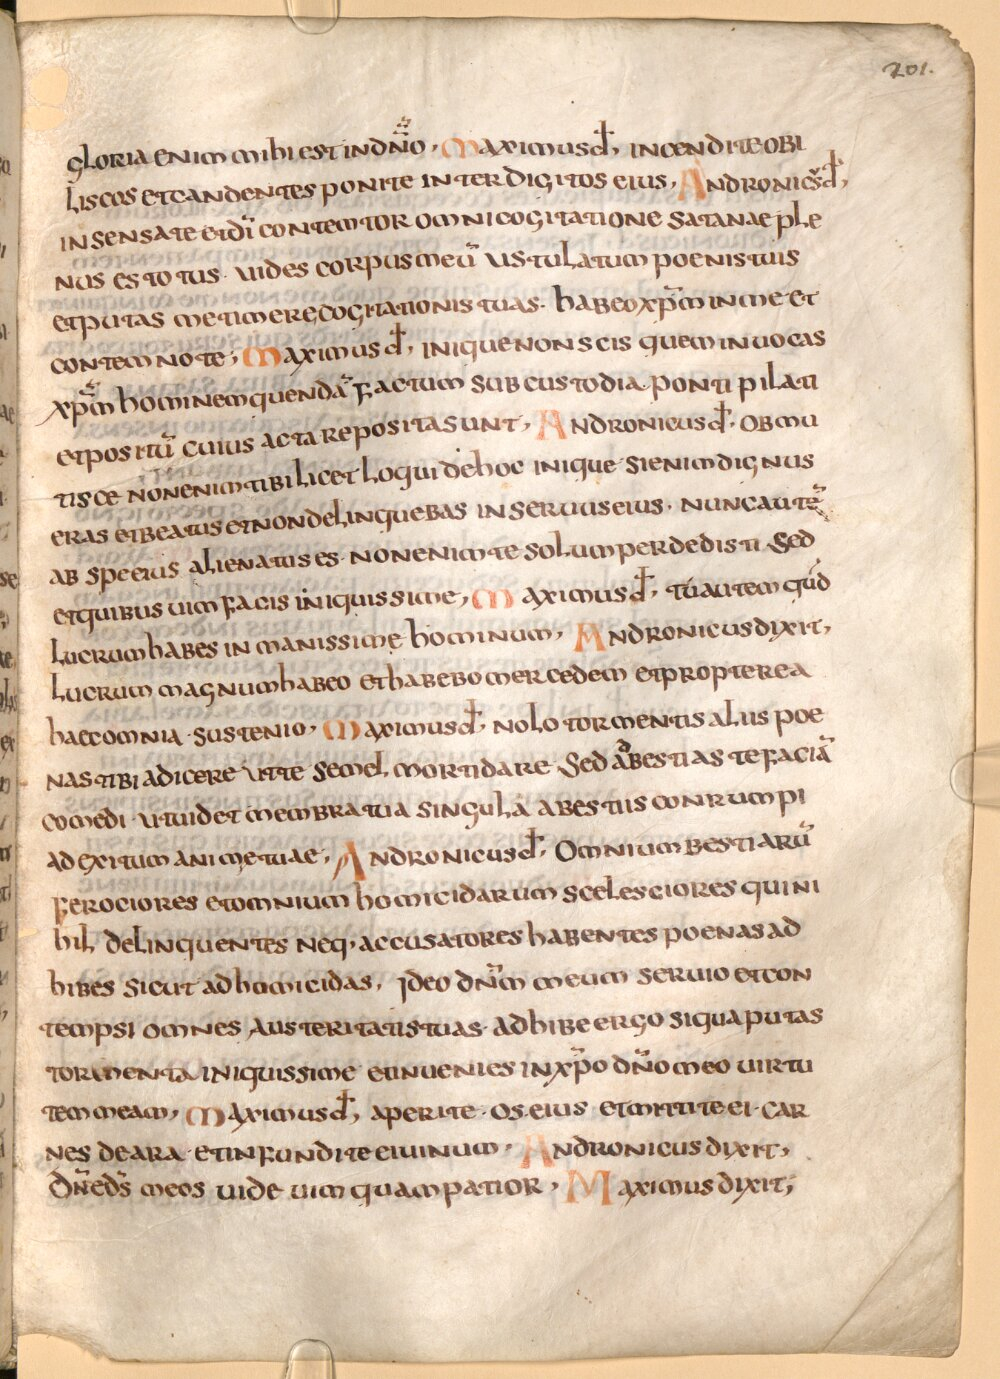 201.
gloria enim mihi est in dn̄o, Maximus đ, incendite obi
liscos et candentes ponite inter digitos eius, Andronicus đ,
insensate et dī contemtor omni cogitatione satanae ple
nus es totus. uides corpus meū ustulatum poenis tuis
et putas me timere cogitationis tuas. habeo xp̄m in me et
contemno te, Maximus đ, inique non scis quem inuocas
xp̄m hominem quendā factum sub custodia ponti pilati
et positū cuius acta reposita sunt, Andronicus đ, obmu
tisce non enim tibi licet loqui de hoc inique si enim dignus
eras et beatus et non delinquebas in seruus eius. nunc autē
ab spe eius alienatus es. non enim te solum perdedisti sed
et quibus uim facis iniquissime, Maximus đ, tū autem quid
lucrum habes inmanissime hominum, Andronicus dixit,
lucrum magnum habeo et habebo mercedem et propterea
haec omnia sustenio, Maximus đ, nolo tormentis aliis poe
nas tibi adicere ut te semel morti dare sed ad bestias te faciā
comedi ut uidet membra tua singula a bestiis conrumpi
ad exitum anime tuae, Andronicus đ, omnium bestiarū
ferociores et omnium homicidarum scelesciores qui ni
hil delinquentes neq, accusatores habentes poenas ad
hibes sicut ad homicidas, ideo dn̄m meum seruio et con
tempsi omnes austeritatis tuas. adhibe ergo si qua putas
tormenta iniquissime et inuenies in xp̄o dn̄o meo uirtu
tem meam, Maximus đ, aperite os eius et mittite ei car
nes de ara et infundite ei uinum, Andronicus dixit,
dn̄e d̄s meos uide uim quam patior, Maximus dixit,